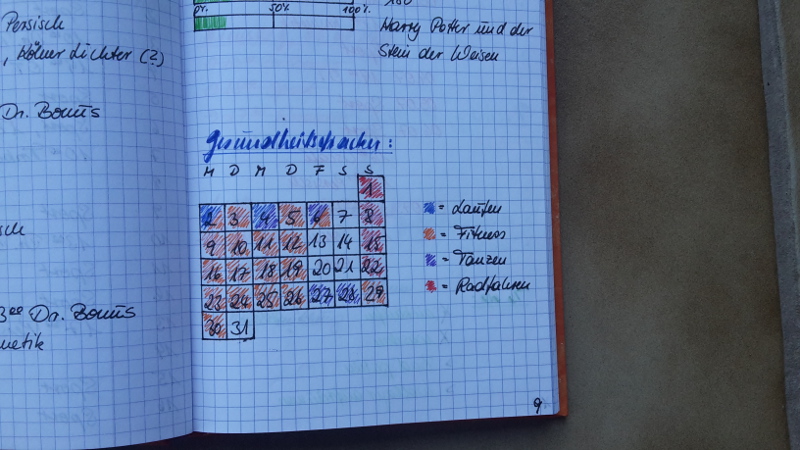 Persisch
, Kölner Lichter (?)
Dr. Bonús
Dr. Bonús
netik
0%. 50% 100%.
Harry Potter und der
Stein der Weisen
Gesundheitstracker:
M D M D F S S
1
2 3 4 5 6 7 8
9 10 11 12 13 14 15
16 17 18 19 20 21 22
23 24 25 26 27 28 29
30 31
= Laufen
= Fitness
= Tanzen
= Radfahren
9